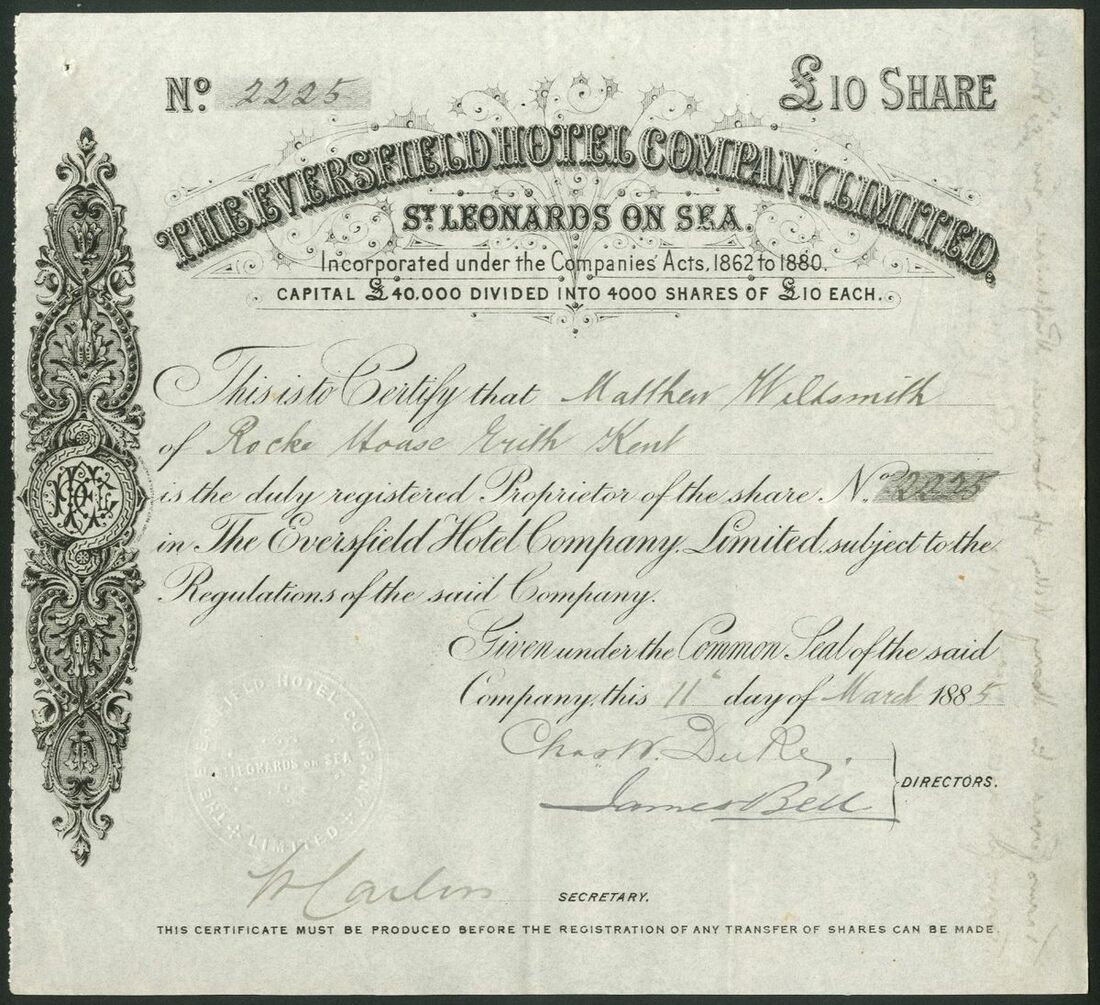 No. 2225
£10 SHARE
THE EVERSFIELD HOTEL COMPANY LIMITED.
ST. LEONARDS ON SEA.
Incorporated under the Companies' Acts, 1862 to 1880.
CAPITAL £40.000 DIVIDED INTO 4000 SHARES OF £10 EACH.
This is to Certify that Matthew Wildsmith
of Rocke House Erith Kent
is the duly registered Proprietor of the share No. 2225
in The Eversfield Hotel Company, Limited, subject to the
Regulations of the said Company.
Given under the Common Seal of the said
Company, this 11th day of March 1885
Chas W. Duke
James Bell
DIRECTORS.
THE EVERSFIELD HOTEL COMPANY
ST LEONARDS ON SEA
LIMITED
SECRETARY.
THIS CERTIFICATE MUST BE PRODUCED BEFORE THE REGISTRATION OF ANY TRANSFER OF SHARES CAN BE MADE.